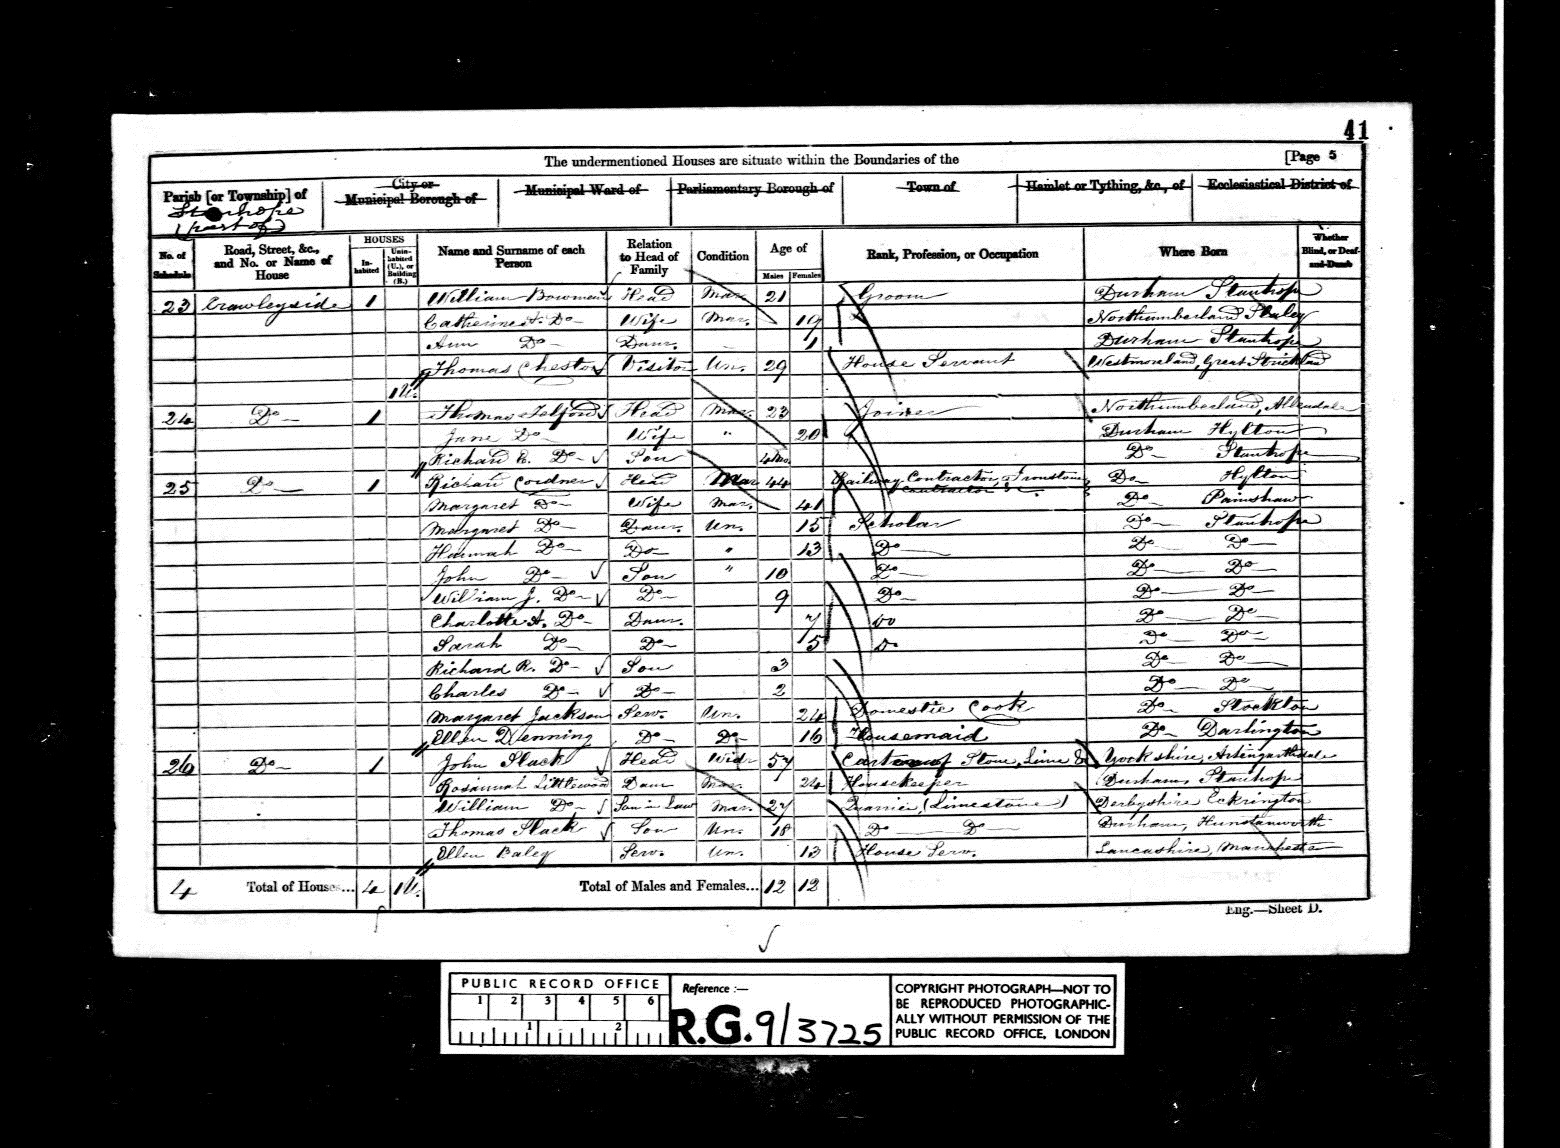 41
The undermentioned Houses are situate within the Boundaries of the [Page 5
Parish [or Township] of City or Municipal Borough of Municipal Ward of Parliamentary Borough of Town of Hamlet or Tything, &c., of Ecclesiastical District of
Stanhope
(part of)
No. of Schedule Road, Street, &c., and No. or Name of House HOUSES Inhabited Uninhabited (U.), or Building (B.) Name and Surname of each Person Relation to Head of Family Condition Age of Males Females Rank, Profession, or Occupation Where Born Whether Blind, or Deaf-and-Dumb
23 Crawleyside 1 William Bowman Head Mar. 21 Groom Durham Stanhope
Catherine A. Do Wife Mar. 19 Northumberland
Ann Do Daur. 1 Durham Stanhope
Thomas Chester Visitor Un. 29 House Servant Westmoreland, Great Strickland
1 U.
24 Do 1 Thomas Telford Head Mar. 23 Joiner Northumberland, Allendale
Jane Do Wife " 20 Durham Hylton
Richard R. Do Son 4 Mo. Do Stanhope
25 Do 1 Richard Cordner Head Mar 44 Railway Contractor, Ironstone Contractor &c. Do Hylton
Margaret Do Wife Mar. 41 Do Painshaw
Margaret Do Daur. Un. 15 Scholar Do Stanhope
Hannah Do Do " 13 Do Do Do
John Do Son " 10 Do Do Do
William J. Do Do 9 Do Do Do
Charlotte A. Do Daur. 7 Do Do Do
Sarah Do Do 5 Do Do Do
Richard R. Do Son 3 Do Do
Charles Do Do 2 Do Do
Margaret Jackson Serv. Un. 24 Domestic Cook Do Stockton
Ellen Denning Do Do 16 Housemaid Do Darlington
26 Do 1 John Slack Head Widr 57 Carter of Stone, Lime & Yorkshire, Arkengarthdale
Rosannah Littlewood Daur Mar. 24 Housekeeper Durham, Stanhope
William Do Son in Law Mar. 27 Quarrier (Limestone) Derbyshire Eckrington
Thomas Slack Son Un. 18 Do Do Durham, Hunstanworth
Ellen Baley Serv. Un. 13 House Serv. Lancashire, Manchester
4 Total of Houses... 4 1 U. Total of Males and Females... 12 12
Eng.—Sheet D.
PUBLIC RECORD OFFICE
1 2 3 4 5 6
1 2
Reference :—
R.G. 9/3725
COPYRIGHT PHOTOGRAPH—NOT TO
BE REPRODUCED PHOTOGRAPHIC-
ALLY WITHOUT PERMISSION OF THE
PUBLIC RECORD OFFICE, LONDON